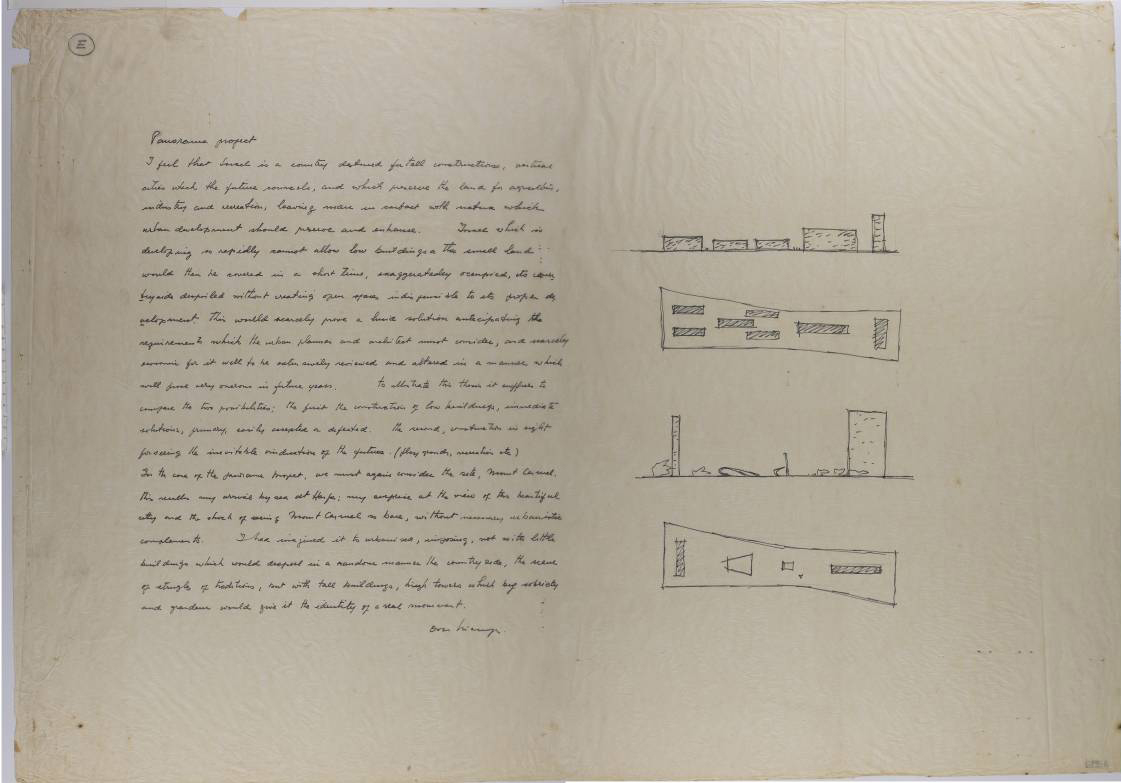 E
Panorama project
I feel that Israel is a country destined for tall constructions, vertical
cities which the future conceals, and which preserve the land for agriculture,
industry and recreation, leaving man in contact with nature which
urban development should preserve and enhance. Israel which is
developing so rapidly cannot allow low buildings a this small land
would then be covered in a short time, exaggeratedly occupied, its
despoiled without creating open spaces indispensible to its proper de
velopment. This would scarcely prove a lucid solution anticipating the
requirements which the urban planner and architect must consider, and scarcely
economic for it will to be extensively reviewed and altered in a manner which
will prove very onerous in future years. To illustrate this thesis it suffices to
compare the two possibilities; the first the construction of low buildings, immediate
solutions, primary, easily accepted or defected. The second, construction in height
forseeing the inevitable vindication of the future. (play grounds, recreation etc)
In the case of the panorama project, we must again consider the site, Mount Carmel.
This recalls my arrival by sea at Haifa; my surprise at the view of this beautiful
city and the shock of seeing Mount Carmel so bare, without necessary urbanistic
complements. I had imagined it to urbanised, imposing, not with little
buildings which would despoil in a random manner the country side, the scene
of struggles of traditions, but with tall buildings, high towers which by sobriety
and grandeur would give it the identity of a real monument.